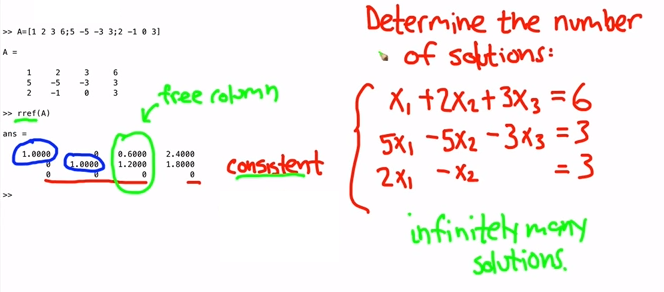 >> A=[1 2 3 6;5 -5 -3 3;2 -1 0 3]
A =
1 2 3 6
5 -5 -3 3
2 -1 0 3
>> rref(A)
ans =
1.0000 0 0.6000 2.4000
0 1.0000 1.2000 1.8000
0 0 0 0
>>
free column
consistent
Determine the number
of solutions:
x₁ + 2x₂ + 3x₃ = 6
5x₁ - 5x₂ - 3x₃ = 3
2x₁ - x₂ = 3
infinitely many
solutions.